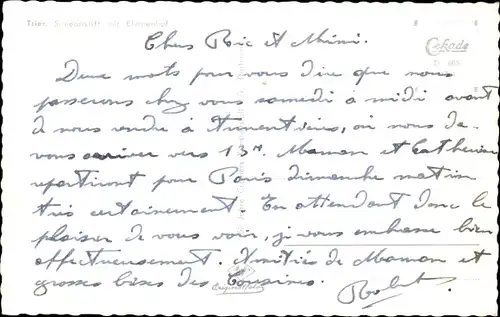 Trier, Simeonstift mit Blumenhof
Cekade
Chers Ric et Mimi.
Deux mots pour vous dire que nous
passerons chez vous samedi à midi avant
de nous rendre à Armentières, où nous de-
vons arriver vers 13H. Maman et Catherine
repartiront pour Paris dimanche matin
très certainement. En attendant donc le
plaisir de vous voir, je vous embrasse bien
affectueusement. Amitiés de Maman et
grosses bises des Cousines.
Robert